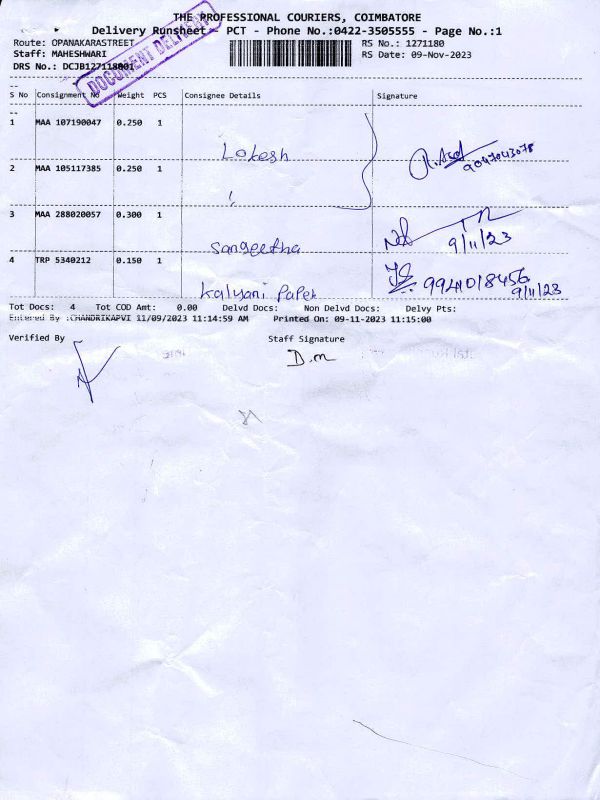 THE PROFESSIONAL COURIERS, COIMBATORE
Delivery Runsheet - PCT - Phone No.:0422-3505555 - Page No.:1
Route: OPANAKARASTREET
RS No.: 1271180
Staff: MAHESHWARI
RS Date: 09-Nov-2023
DRS No.: DCJB127118001
DOCUMENT DELIVERY
S No Consignment No Weight PCS Consignee Details Signature
1 MAA 107190047 0.250 1
Lokesh
2 MAA 105117385 0.250 1
3 MAA 288020057 0.300 1
9/11/23
Sangeetha
4 TRP 5340212 0.150 1
9941018456
9/11/23
Kalyani Paper
Tot Docs: 4 Tot COD Amt: 0.00 Delvd Docs: Non Delvd Docs: Delvy Pts:
Entered By :CHANDRIKAPVI 11/09/2023 11:14:59 AM Printed On: 09-11-2023 11:15:00
Verified By Staff Signature
D.m